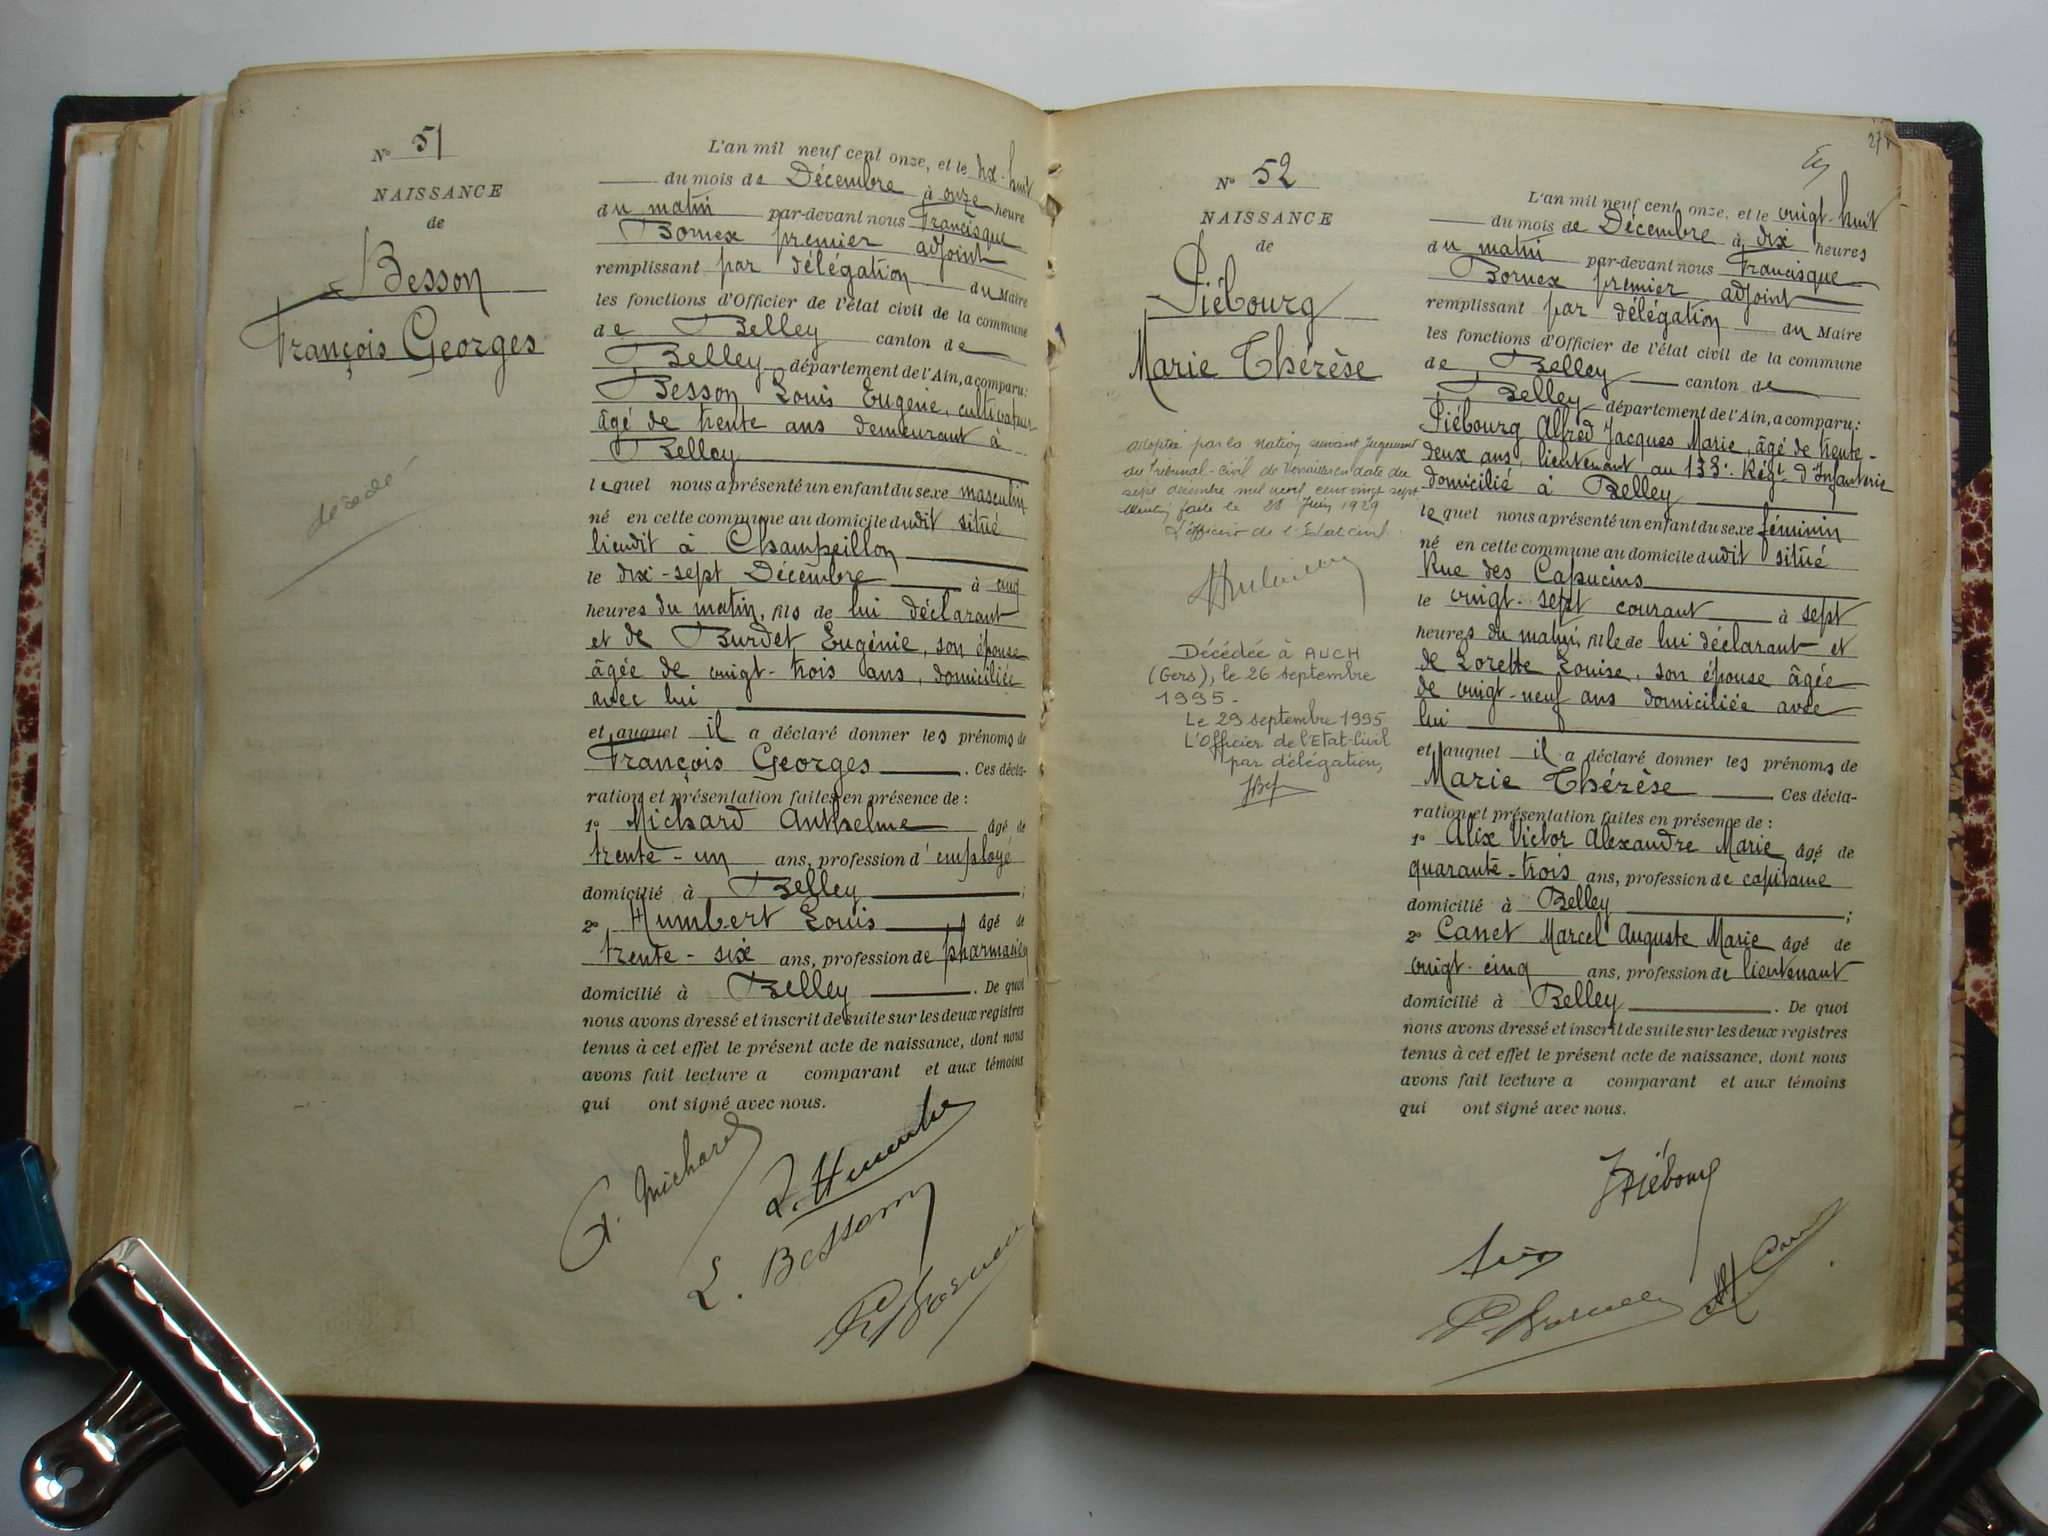 N° 51
NAISSANCE
de
Besson
François Georges
décédé
L'an mil neuf cent onze, et le dix-huit
du mois de Décembre à onze heure
du matin par-devant nous Francisque
Bornex premier adjoint
remplissant par délégation du Maire
les fonctions d'Officier de l'état civil de la commune
de Belley canton de
Belley département de l'Ain, a comparu:
Besson Louis Eugène, cultivateur
âgé de trente ans demeurant à
Belley
lequel nous a présenté un enfant du sexe masculin
né en cette commune au domicile dudit situé
lieudit à Champeillon
le dix-sept Décembre à cinq
heures du matin, fils de lui déclarant
et de Burdet Eugénie, son épouse
âgée de vingt-trois ans, domiciliée
avec lui
et auquel il a déclaré donner les prénoms de
François Georges. Ces décla-
ration et présentation faites en présence de:
1° Michard Anthelme âgé de
trente-un ans, profession d'employé
domicilié à Belley;
2° Humbert Louis âgé de
trente-six ans, profession de pharmacien
domicilié à Belley. De quoi
nous avons dressé et inscrit de suite sur les deux registres
tenus à cet effet le présent acte de naissance, dont nous
avons fait lecture a comparant et aux témoins
qui ont signé avec nous.
A. Michard
L. Humbert
L. Besson
Fe Bornex
27
N° 52
NAISSANCE
de
Piébourg
Marie Thérèse
adoptée par la Nation suivant Jugement
du Tribunal-Civil de Versailles en date du
sept décembre mil neuf cent vingt sept
Mention faite le 28 Juin 1929
L'officier de l'Etat civil
Décédée à AUCH
(Gers), le 26 septembre
1995.
Le 29 septembre 1995
L'Officier de l'Etat-Civil
par délégation,
L'an mil neuf cent onze, et le vingt-huit
du mois de Décembre à dix heures
du matin par-devant nous Francisque
Bornex premier adjoint
remplissant par délégation du Maire
les fonctions d'Officier de l'état civil de la commune
de Belley canton de
Belley département de l'Ain, a comparu:
Piébourg Alfred Jacques Marie, âgé de trente-
deux ans, lieutenant au 133e Régt d'Infanterie
domicilié à Belley
lequel nous a présenté un enfant du sexe féminin
né en cette commune au domicile dudit situé
Rue des Capucins
le vingt-sept courant à sept
heures du matin, fille de lui déclarant et
de Lorette Louise, son épouse âgée
de vingt-neuf ans domiciliée avec
lui
et auquel il a déclaré donner les prénoms de
Marie Thérèse Ces décla-
ration et présentation faites en présence de:
1° Alix Victor Alexandre Marie âgé de
quarante-trois ans, profession de capitaine
domicilié à Belley;
2° Canet Marcel Auguste Marie âgé de
vingt-cinq ans, profession de lieutenant
domicilié à Belley. De quoi
nous avons dressé et inscrit de suite sur les deux registres
tenus à cet effet le présent acte de naissance, dont nous
avons fait lecture a comparant et aux témoins
qui ont signé avec nous.
Piébourg
Alix
M. Canet
Fe Bornex